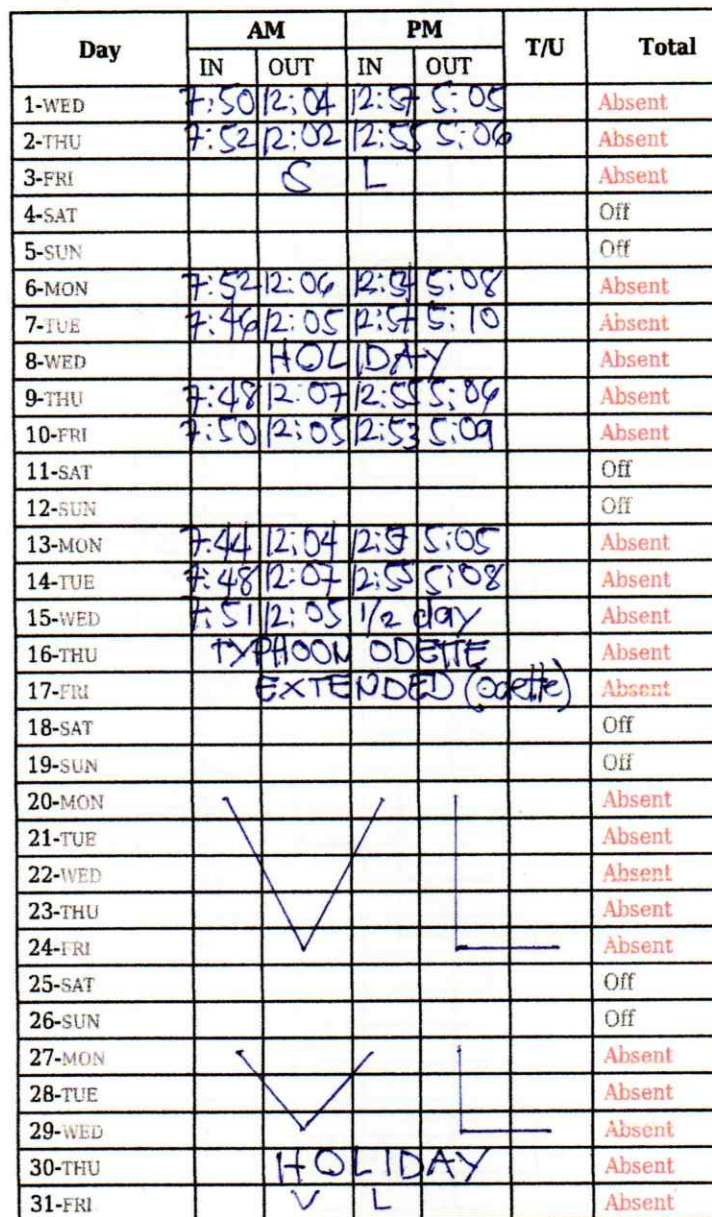 Day AM PM T/U Total
IN OUT IN OUT
1-WED 7:50 12:04 12:57 5:05 Absent
2-THU 7:52 12:02 12:55 5:06 Absent
3-FRI S L Absent
4-SAT Off
5-SUN Off
6-MON 7:52 12:06 12:54 5:08 Absent
7-TUE 7:46 12:05 12:57 5:10 Absent
8-WED HOLIDAY Absent
9-THU 7:48 12:07 12:55 5:06 Absent
10-FRI 7:50 12:05 12:53 5:09 Absent
11-SAT Off
12-SUN Off
13-MON 7:44 12:04 5:05 Absent
14-TUE 7:48 12:07 12:55 5:08 Absent
15-WED 7:51 12:05 1/2 day Absent
16-THU TYPHOON ODETTE Absent
17-FRI EXTENDED (Odette) Absent
18-SAT Off
19-SUN Off
20-MON Absent
21-TUE Absent
22-WED V L Absent
23-THU Absent
24-FRI Absent
25-SAT Off
26-SUN Off
27-MON Absent
28-TUE V L Absent
29-WED Absent
30-THU HOLIDAY Absent
31-FRI V L Absent